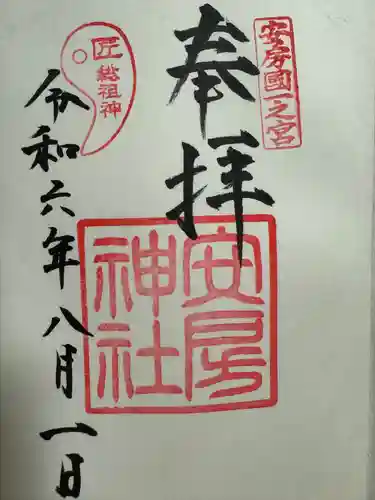 安房國一之宮
奉拝
安房
神社
匠総祖神
令和六年八月一日